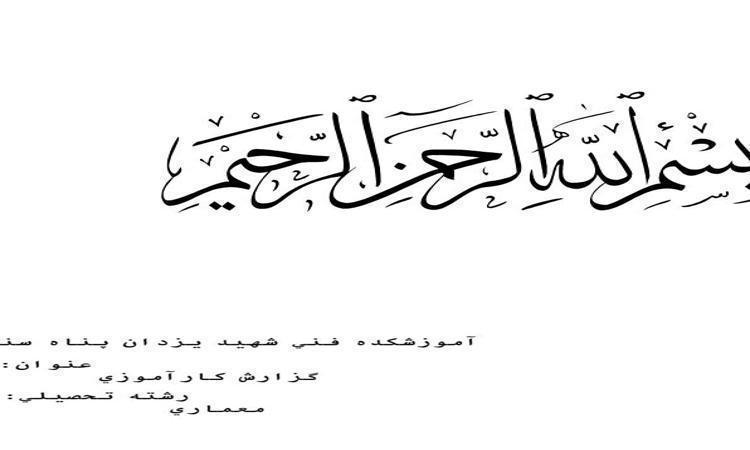 بسم الله الرحمن الرحیم
آموزشکده فني شهيد يزدان پناه
عنوان:
گزارش کارآموزي
رشته تحصيلي:
معماري